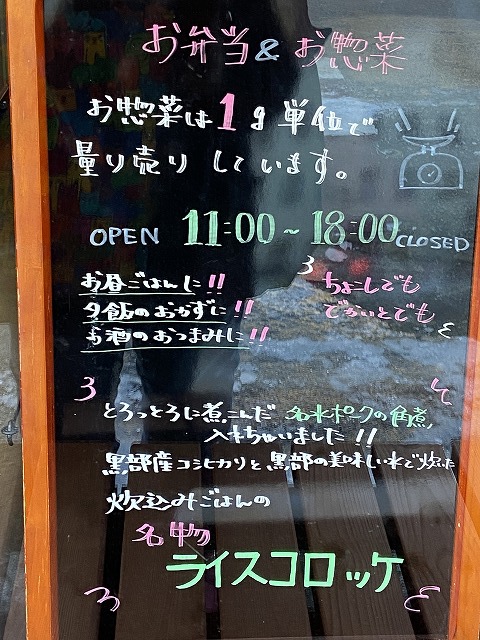 お弁当&お惣菜
お惣菜は1g単位で
量り売りしています。
OPEN 11:00~18:00 CLOSED
お昼ごはんに!!
夕飯のおかずに!!
お酒のおつまみに!!
ちょこしでも
でかいとでも
とろっとろに煮こんだ 名水ポークの角煮,
入れちゃいました!!
黒部産コシヒカリと、黒部の美味しい水で炊いた
炊込みごはんの
名物
ライスコロッケ